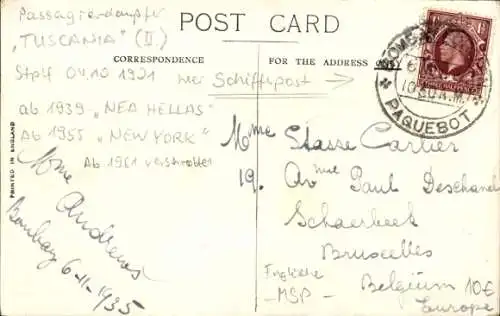 Passagierdampfer
"TUSCANIA" (II.)
Stplf 04.10 1921
hier Schiffspost →
ab 1939 "NEA HELLAS"
Ab 1955 "NEW YORK"
Ab 1961 verschrottet
POST CARD
CORRESPONDENCE
FOR THE ADDRESS ONLY
PRINTED IN ENGLAND
PAQUEBOT
10 30 A.M.
Mme Stasse Cartier
19. Avnue Paul Deschanel
Schaerbeek
Bruxelles
Belgium
Europe
10€
Englische
- MSP -
Mme Andrews
Bombay 6-11-1935